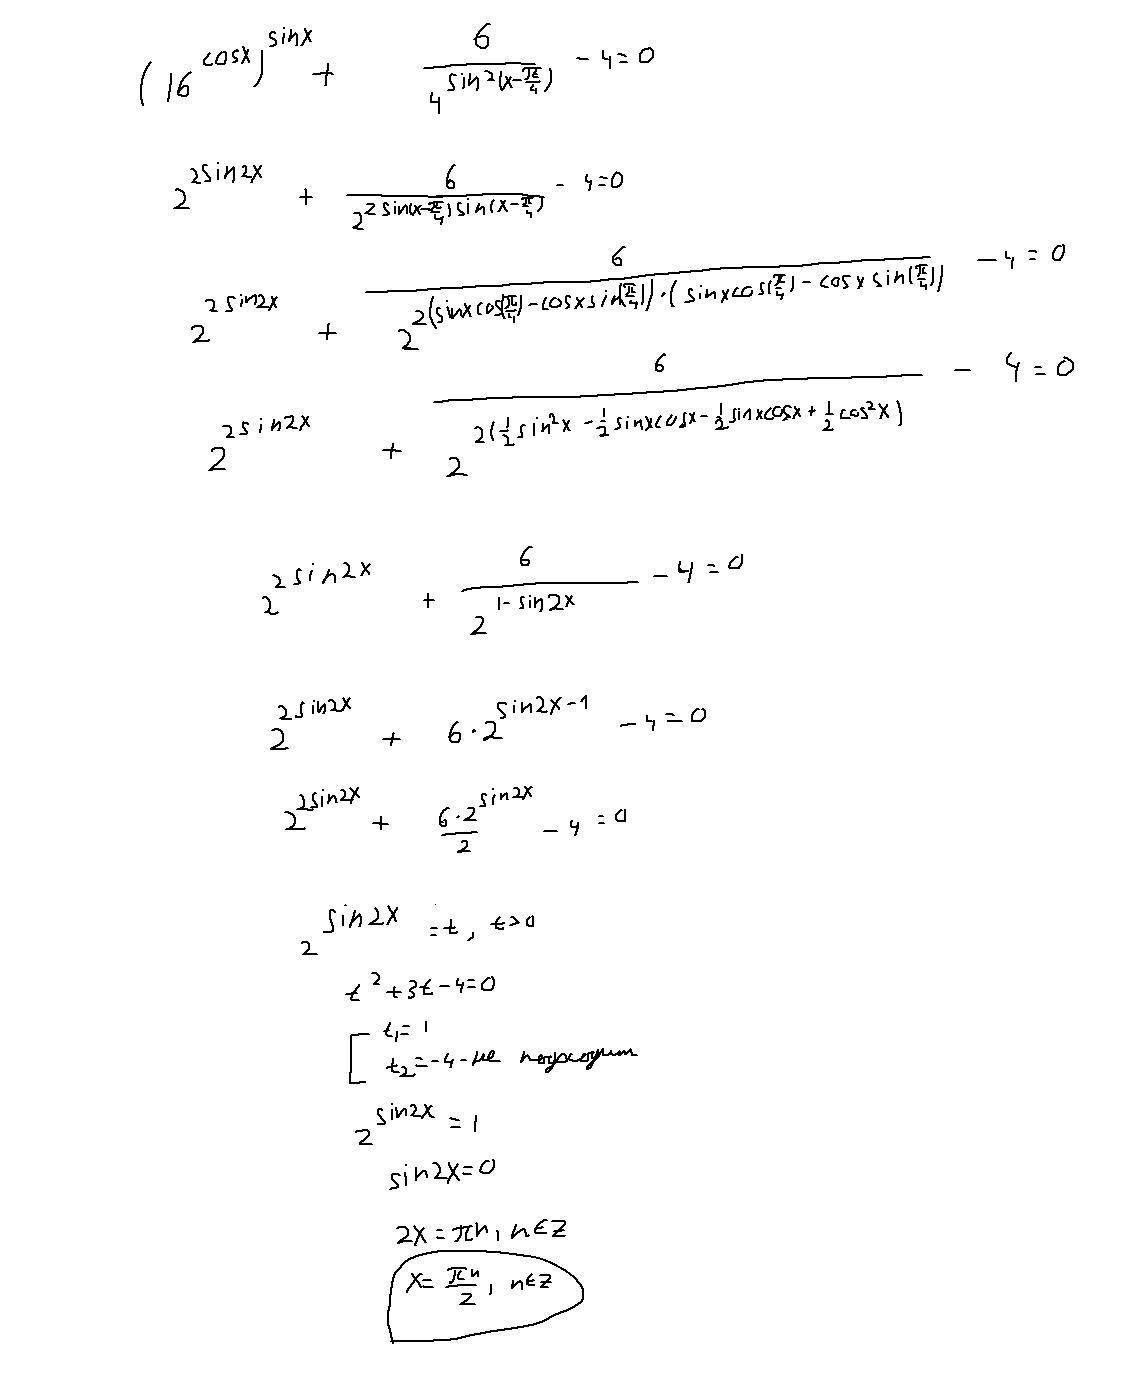 (16^cosx)^sinx + 6/4^sin²(x-π/4) - 4=0
2^2sin2x + 6/2^2sin(x-π/4)sin(x-π/4) - 4=0
2^2sin2x + 6/2^2(sinxcos(π/4)-cosxsin(π/4))·(sinxcos(π/4)-cosxsin(π/4)) - 4=0
2^2sin2x + 6/2^2(1/2sin²x - 1/2sinxcosx - 1/2sinxcosx + 1/2cos²x) - 4=0
2^2sin2x + 6/2^1-sin2x - 4=0
2^2sin2x + 6·2^sin2x-1 - 4=0
2^2sin2x + 6·2^sin2x/2 - 4=0
2^sin2x = t, t>0
t²+3t-4=0
[ t₁=1
t₂=-4-не подходит
2^sin2x = 1
sin2x=0
2x=πn, n∈Z
x=πn/2, n∈Z